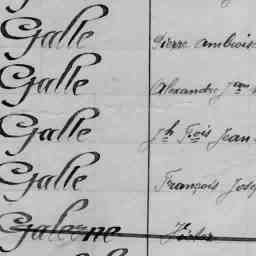 Galle Pierre Ambrois
Galle Alexandre Jean
Galle Jh Fois Jean
Galle François Jose
Galerne Victor